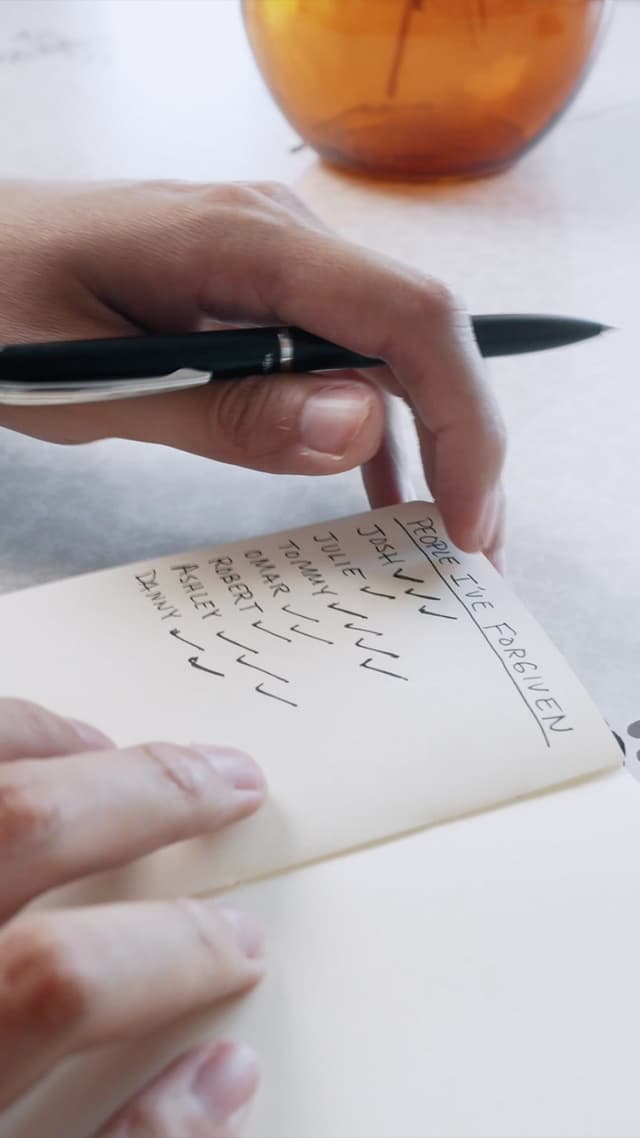 PEOPLE I'VE FORGIVEN
JOSH ✓✓✓
JULIE ✓
TOMMY ✓✓✓✓
OMAR ✓✓
ROBERT ✓
ASHLEY ✓✓✓
DANNY ✓✓